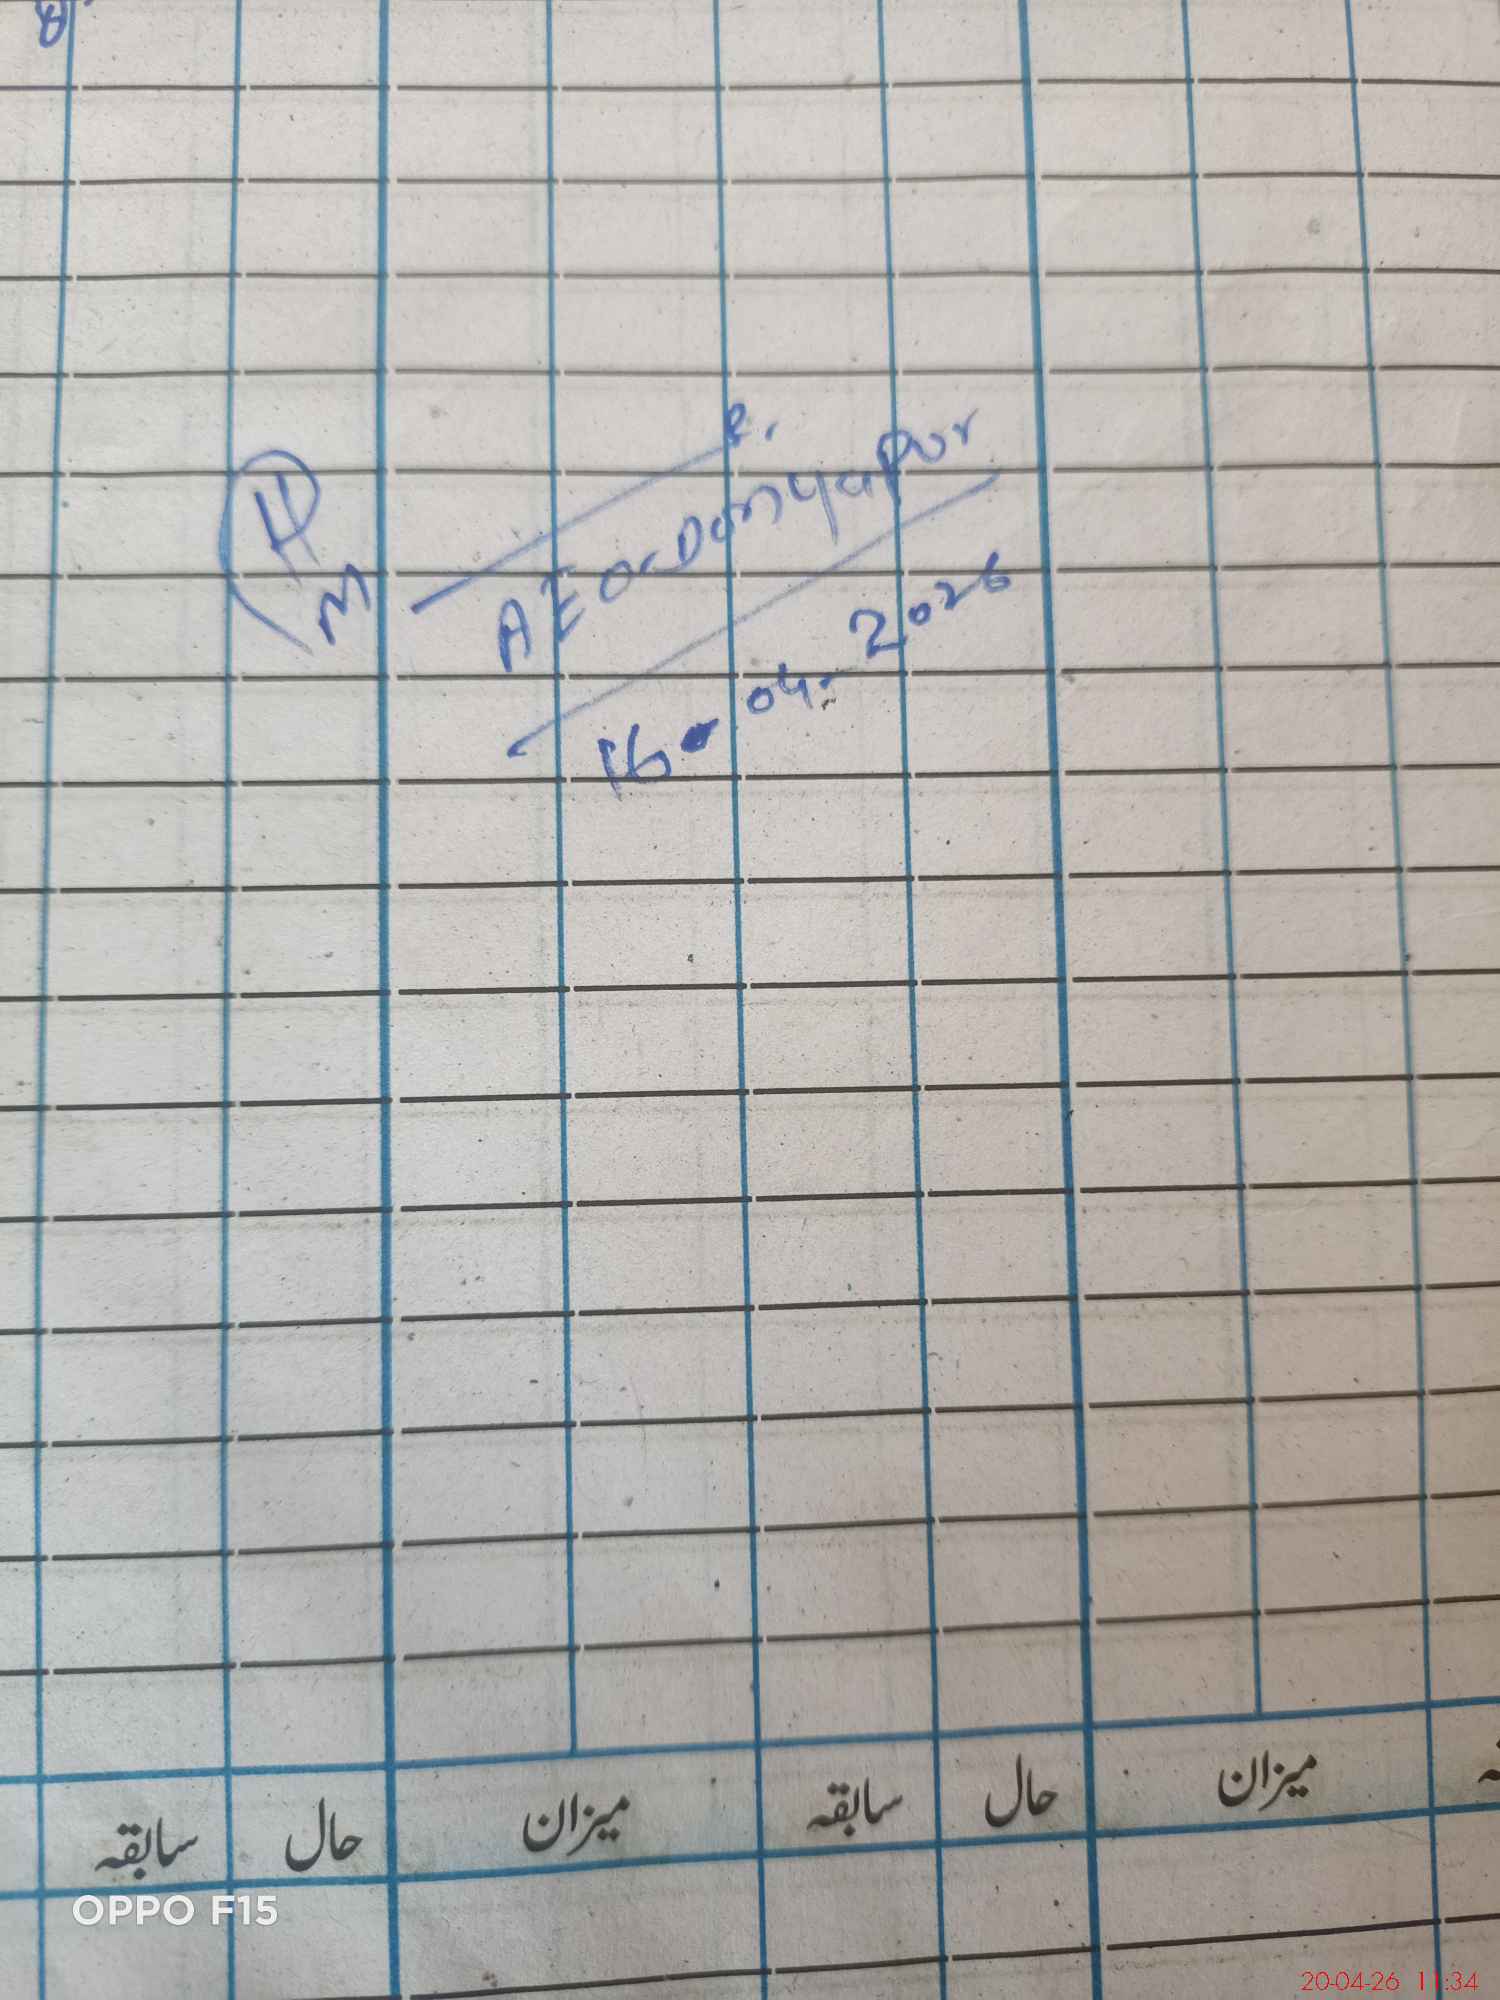 8
H
M
AEO-Donyapur
16-04-2026
میزان حال سابقہ میزان حال سابقہ
OPPO F15
20-04-26 11:34